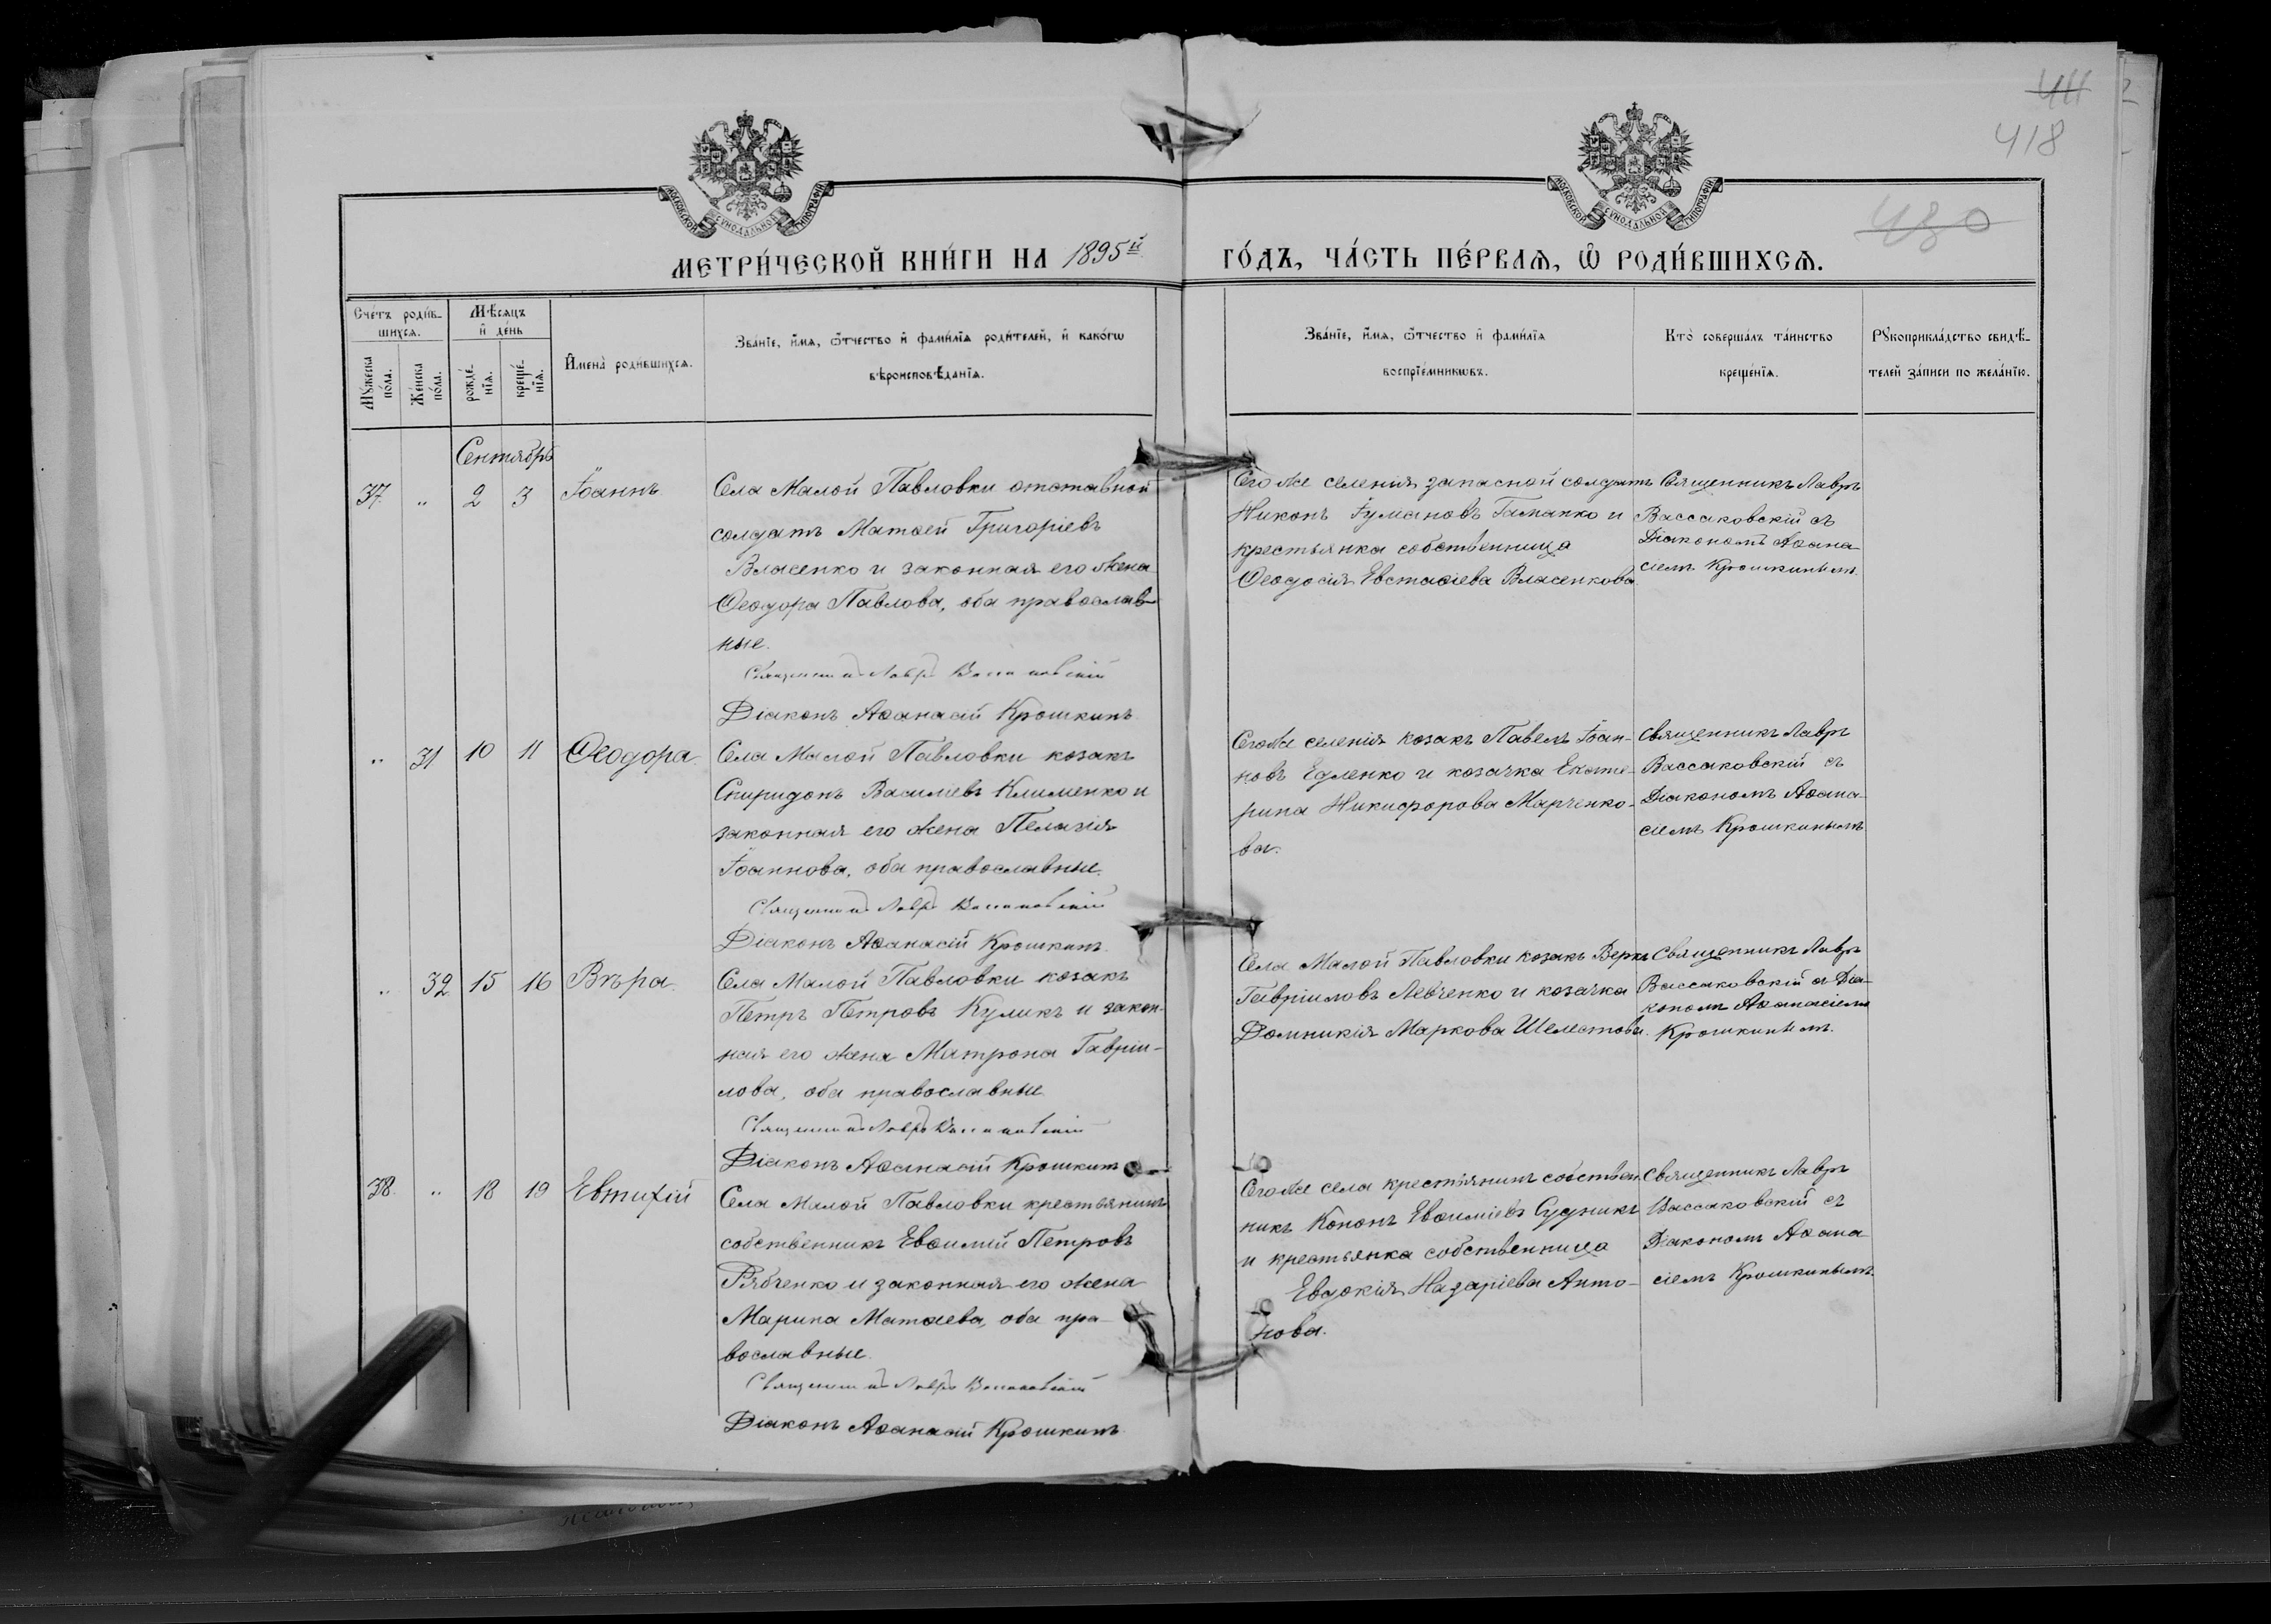 411
418
430
МОСКОВСКОЙ СѴНОДАЛЬНОЙ ТИПОГРАФІИ
МОСКОВСКОЙ СѴНОДАЛЬНОЙ ТИПОГРАФІИ
МЕТРИ́ЧЕСКОЙ КНИ́ГИ НА 1895й ГО́ДЪ, ЧА́СТЬ ПЕ́РВАѦ, Ѽ РОДИ́ВШИХСѦ.
Сче́тъ роди́в-
шихсѧ.
Мꙋ́жеска
по́ла.
Же́нска
по́ла.
Мѣ́сѧцъ
и҆ де́нь
рожде́-
нїѧ.
креще́-
нїѧ.
И҆мена̀ роди́вшихсѧ.
Зва́нїе, и҆́мѧ, ѻ҆́тчество и҆ фами́лїѧ роди́телей, и҆ како́гѡ
вѣроисповѣ́данїѧ.
Зва́нїе, и҆́мѧ, ѻ҆́тчество и҆ фами́лїѧ
воспрїе́мникѡвъ.
Кто̀ соверша́лъ та́инство
креще́нїѧ.
Рꙋкоприкла́дство свидѣ́-
телей за́писи по жела́нїю.
Сентябрь
37. „ 2 3 Іоаннъ
Села Малой Павловки отставной
солдатъ Матѳей Григоріевъ
Власенко и законная его жена
Ѳеодора Павлова, оба православ-
ные.
Священникъ Лавръ Вассаковскій
Діаконъ Аѳанасій Крошкинъ
Того же селенія запасной солдатъ
Никонъ Іумановъ Гапапко и
крестьянка собственница
Ѳеодосія Евстаѳіева Власенкова
Священникъ Лавръ
Вассаковскій съ
Діакономъ Аѳана-
сіемъ Крошкинымъ.
„ 31 10 11 Ѳеодора.
Села Малой Павловки козакъ
Спиридонъ Василіевъ Клименко и
законная его жена Пелагія
Іоаннова, оба православные.
Священникъ Лавръ Вассаковскій
Діаконъ Аѳанасій Крошкинъ.
Того же селенія козакъ Павелъ Іоан-
новъ Едленко и козачка Екате-
рина Никифорова Марченко-
ва.
Священникъ Лавръ
Вассаковскій съ
Діакономъ Аѳана-
сіемъ Крошкинымъ
„ 32 15 16 Вѣра.
Села Малой Павловки козакъ
Петръ Петровъ Куликъ и закон-
ная его жена Матрона Гавріи-
лова, оба православные
Священникъ Лавръ Вассаковскій
Діаконъ Аѳанасій Крошкинъ
Села Малой Павловки козакъ
Гавріиловъ Левченко и козачка
Домникія Маркова Шелестова.
Священникъ Лавръ
Вассаковскій съ Діа-
кономъ Аѳанасіемъ
Крошкинымъ.
38. „ 18 19 Евтихій
Села Малой Павловки крестьянинъ
собственникъ Евѳимій Петровъ
Рябченко и законная его жена
Марина Матѳеева, оба пра-
вославные.
Священникъ Лавръ Вассаковскій
Діаконъ Аѳанасій Крошкинъ
Того же села крестьянинъ собствен-
никъ Кононъ Евѳиміевъ Судникъ
и крестьянка собственница
Евдокія Назаріева Анто-
нова.
Священникъ Лавръ
Вассаковскій съ
Діакономъ Аѳана-
сіемъ Крошкинымъ.